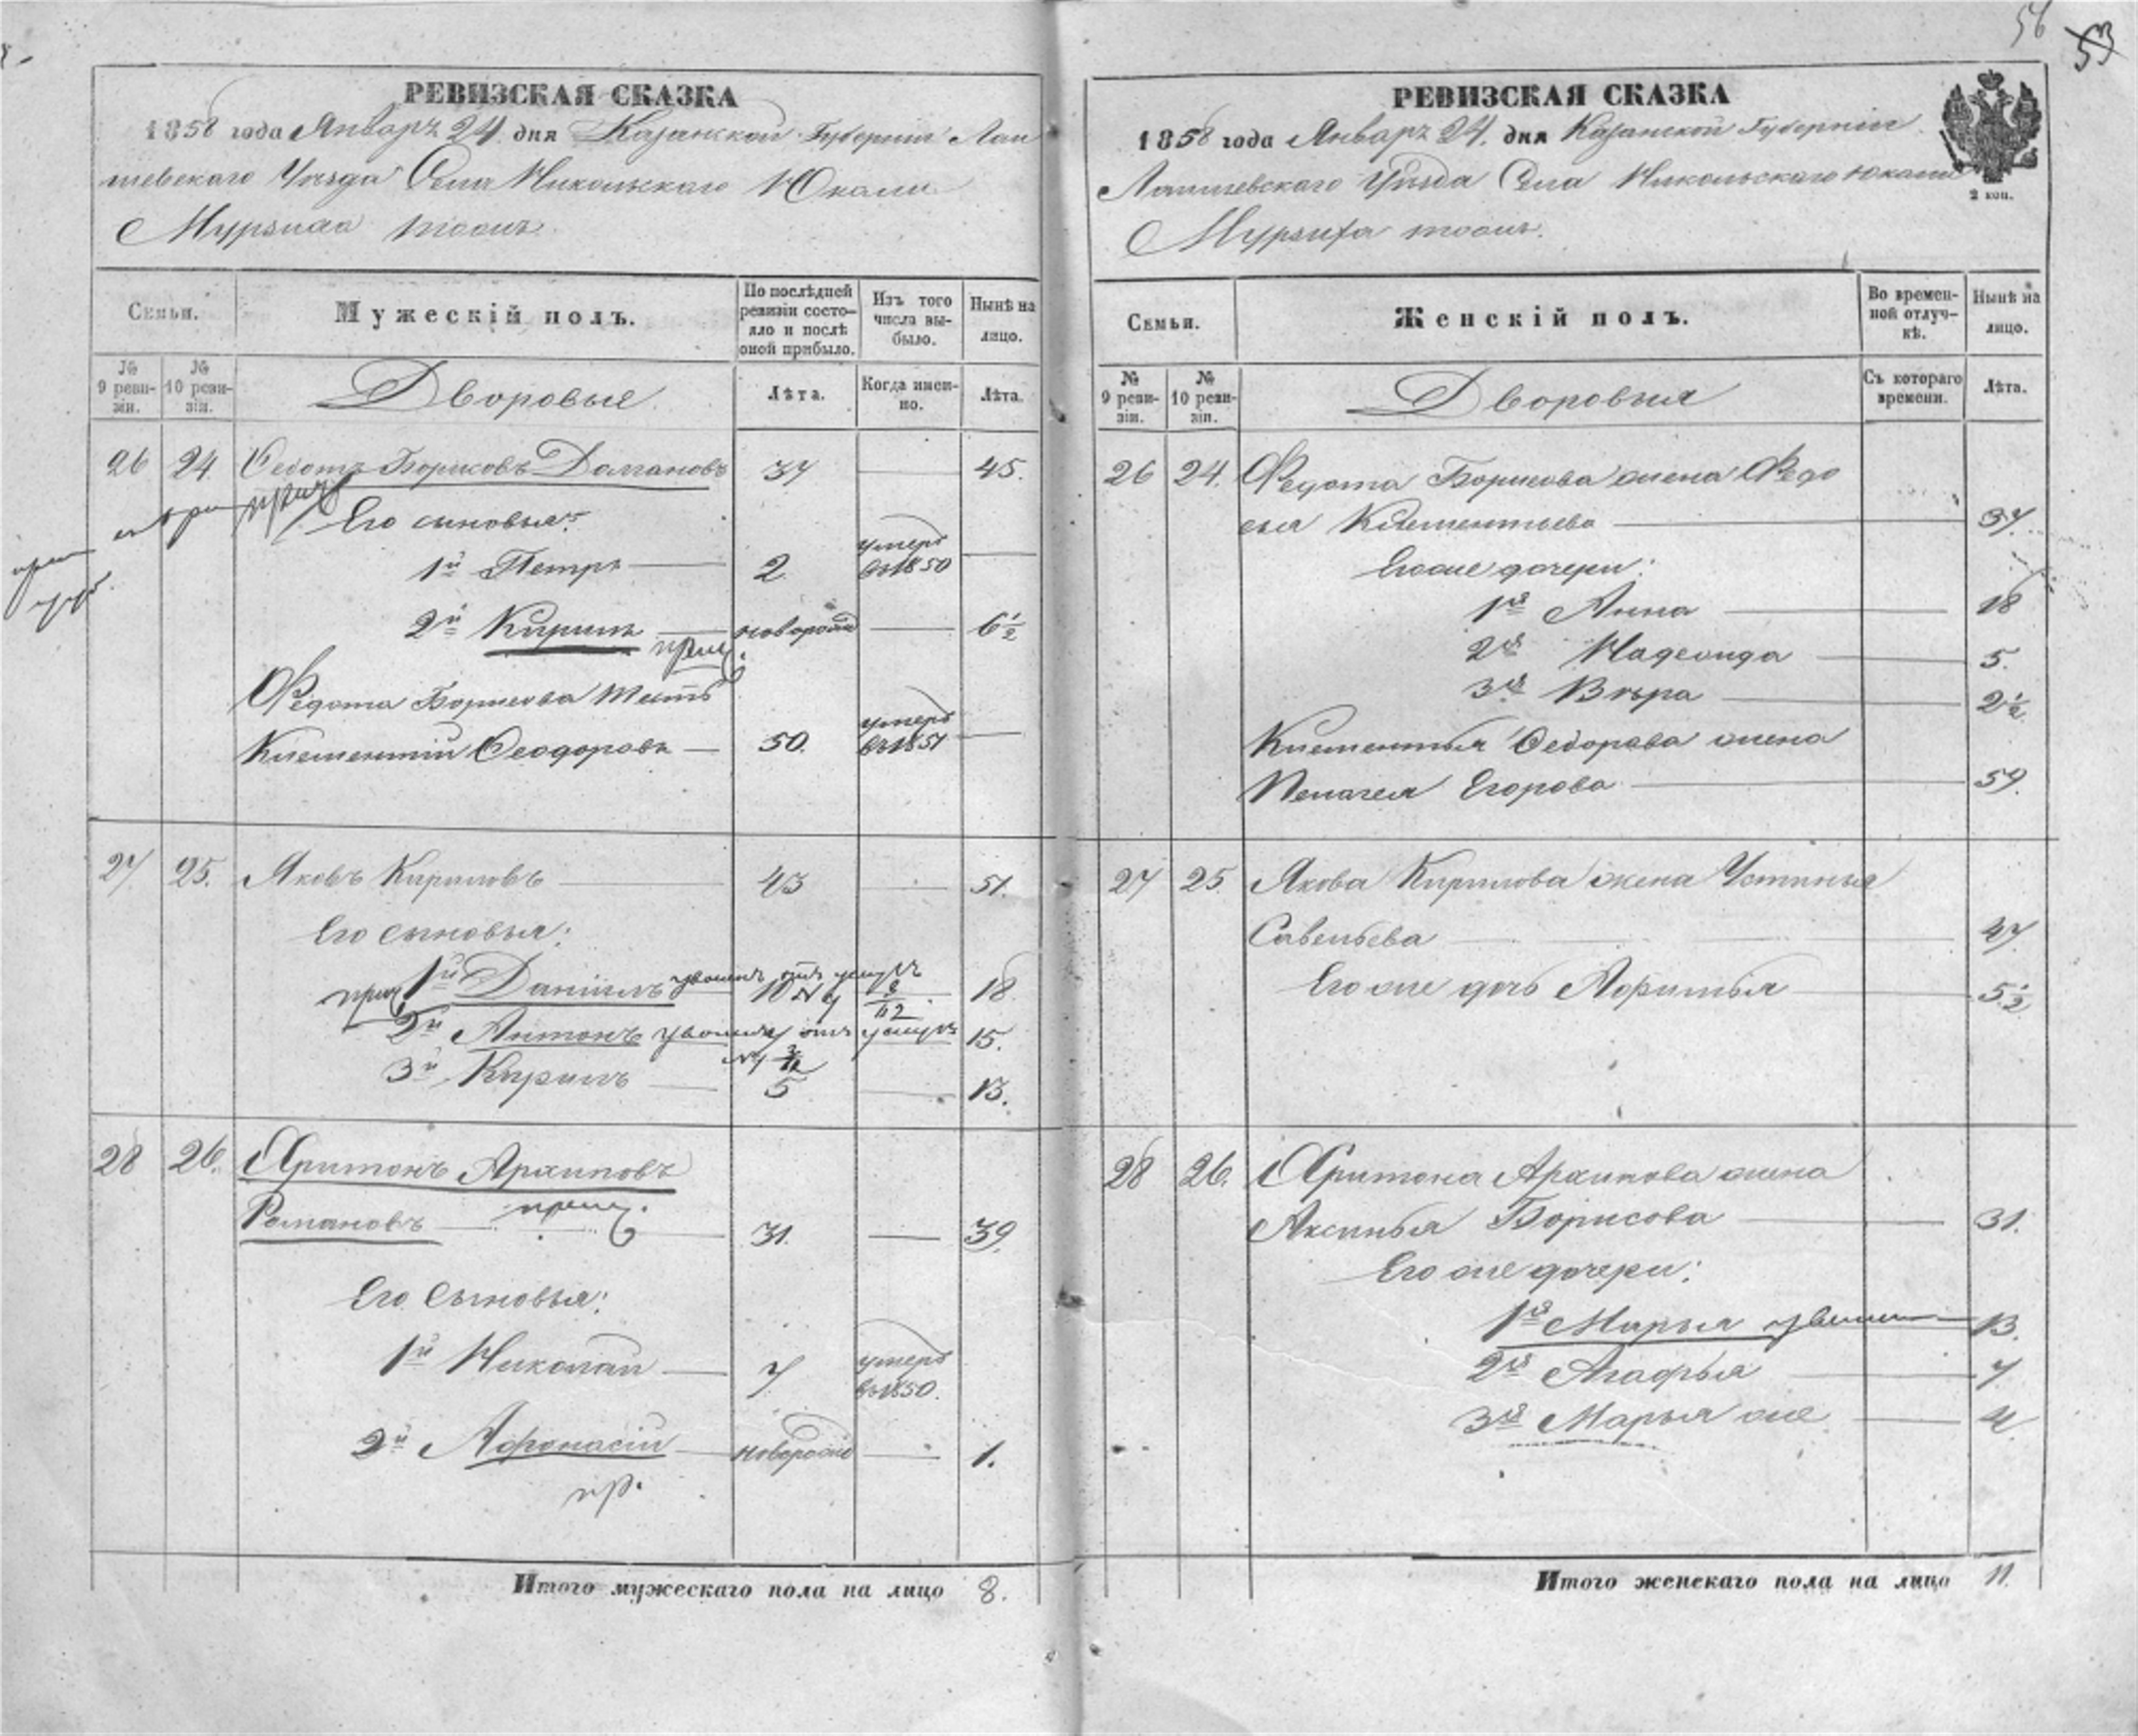 56
53
РЕВИЗСКАЯ СКАЗКА
1858 года Январь 24 дня Казанской Губернии Лаи
шевскаго Уѣзда Села Никольскаго Юкали
Мурзиха тожъ.
Семьи.
Мужескій полъ.
По послѣдней ревизіи состояло и послѣ оной прибыло.
Изъ того числа выбыло.
Нынѣ на лицо.
№ 9 ревизіи.
№ 10 ревизіи.
Дворовые
Лѣта.
Когда именно.
Лѣта.
26 24 Федотъ Борисовъ Долгановъ 37 45.
Его сыновья:
1й Петръ 2. умеръ въ 1850
2й Кирилъ новорожд 6½
Федота Борисова тесть
Климентій Феодоровъ 50. умеръ въ 1851
27 25. Яковъ Кириловъ 43 51.
Его сыновья:
1й Даніилъ 10 18
2й Антонъ 7 15.
3й Кирилъ 5 13.
28 26. Харитонъ Архиповъ
Романовъ 31. 39.
Его сыновья:
1й Николай 7 умеръ въ 1850.
2й Афонасій новорожд 1.
пр.
Итого мужескаго пола на лицо 8.
РЕВИЗСКАЯ СКАЗКА
1858 года Январь 24. дня Казанской Губерніи
Лаишевскаго Уѣзда Села Никольскаго Юкали
Мурзиха тожъ.
2 коп.
Семьи.
Женскій полъ.
Во временной отлучкѣ.
Нынѣ на лицо.
№ 9 ревизіи.
№ 10 ревизіи.
Дворовыя
Съ котораго времени.
Лѣта.
26 24. Федота Борисова жена Федо
сья Климентьева 37.
Его же дочери:
1я Анна 18
2я Надежда 5.
3я Вѣра 2½
Климентья Федорова жена
Пелагея Егорова 59.
27 25. Якова Кирилова жена Устинья
Савельева 47
Его же дочь Афимья 5½
28 26. Харитона Архипова жена
Аксинья Борисова 31.
Его же дочери:
1я Марья 13.
2я Агафья 7
3я Марья же 4
Итого женскаго пола на лицо 11.